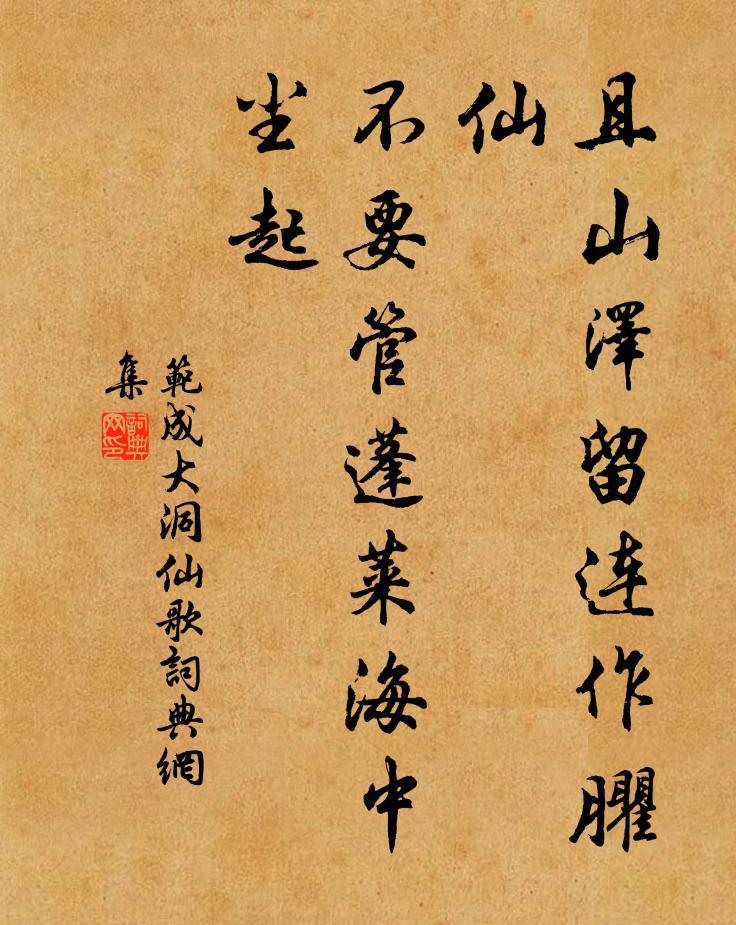 且山澤留連作臞
仙
不要管蓬萊海中
尘起
範成大洞仙歌詞典網
集
詞典
网印